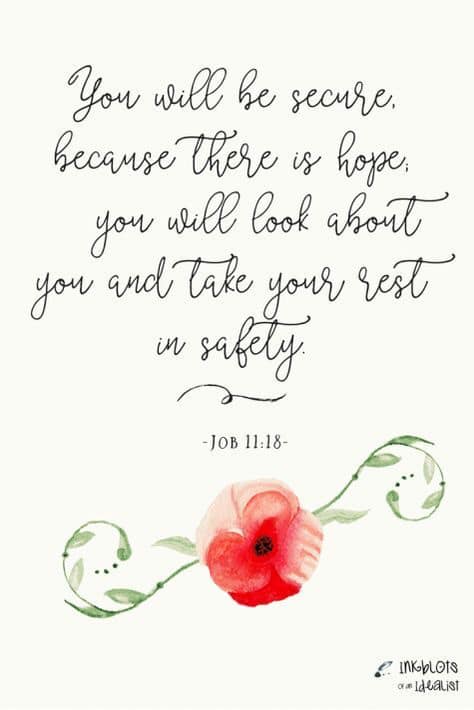 You will be secure,
because there is hope;
you will look about
you and take your rest
in safety.
-Job 11:18-
Inkblots
of an Idealist